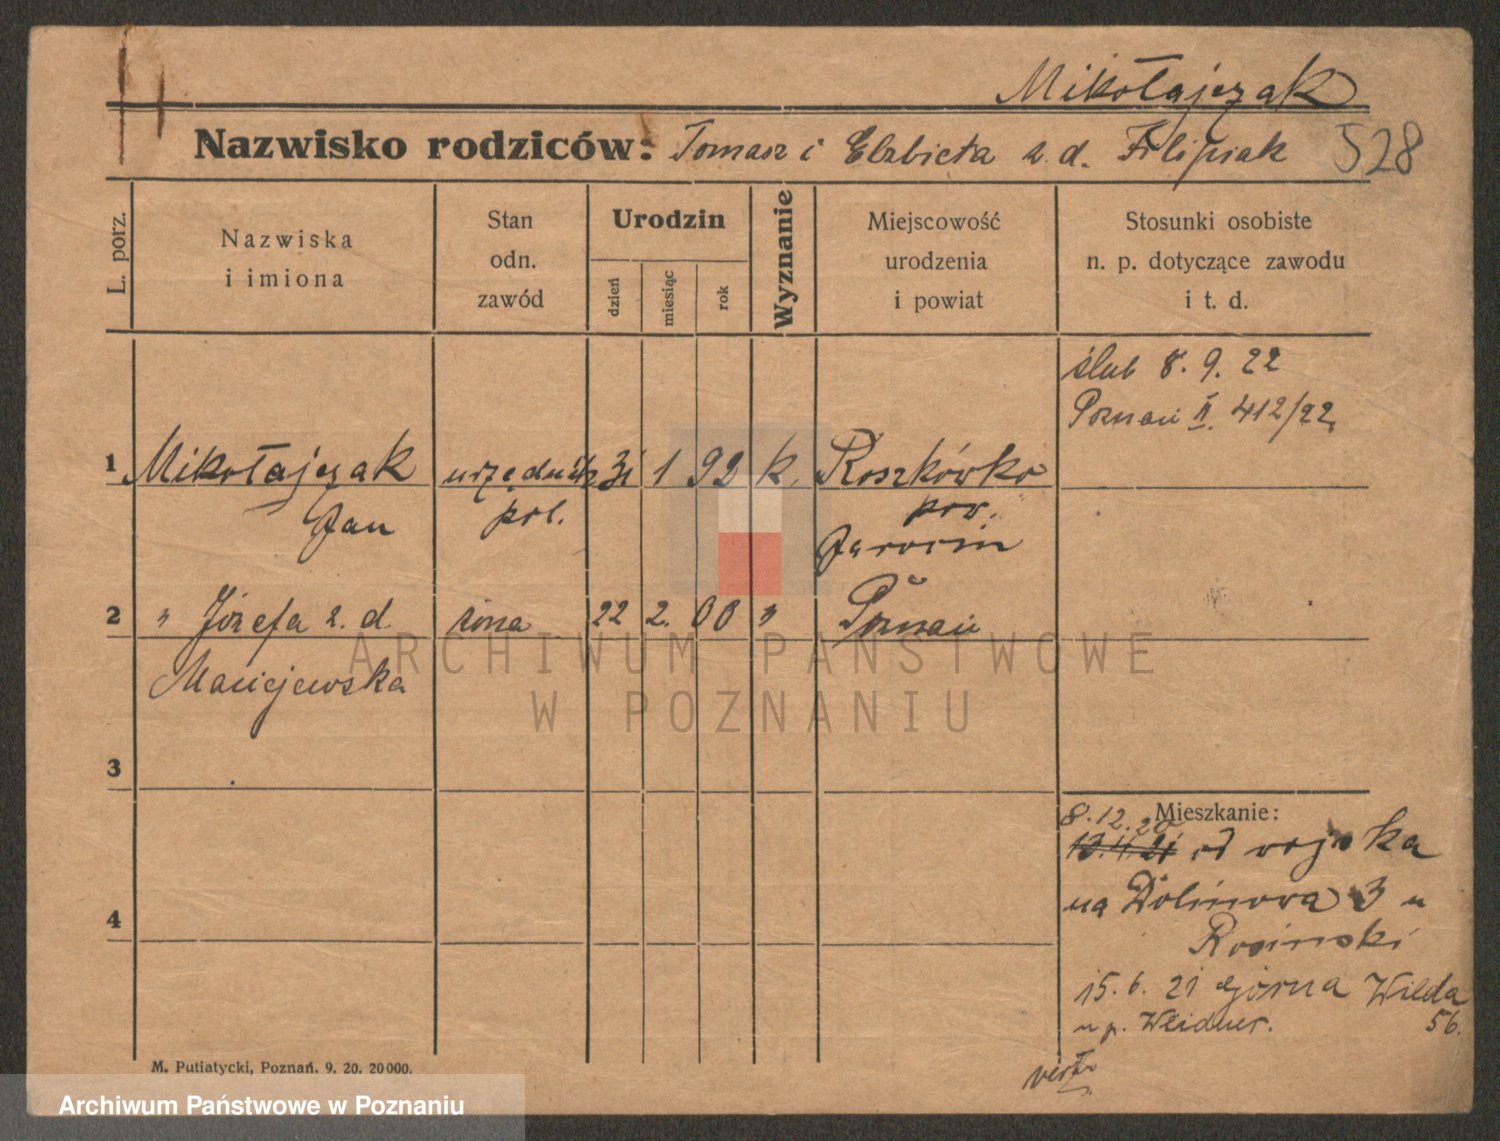 Mikołajczak
Nazwisko rodziców: Tomasz i Elżbieta z. d. Filipiak 528
L. porz.
Nazwiska
i imiona
Stan
odn.
zawód
Urodzin
dzień
miesiąc
rok
Wyznanie
Miejscowość
urodzenia
i powiat
Stosunki osobiste
n. p. dotyczące zawodu
i t. d.
ślub 8. 9. 22
Poznań II. 412/22
1 Mikołajczak urzędnik 31 1 92 k. Roszkówko
Jan pol. pow.
Jarocin
2 " Józefa z. d. żona 22 2. 00 " Poznań
Maciejewska
3
4
Mieszkanie:
8.12.20
13.4.21 od wojska
na Dolinowa 3 u
Rosinski
15. 6. 21 Górna Wilda
u p. Weidner. 56.
verte
M. Putiatycki, Poznań. 9. 20. 20000.
ARCHIWUM PAŃSTWOWE
W POZNANIU
Archiwum Państwowe w Poznaniu